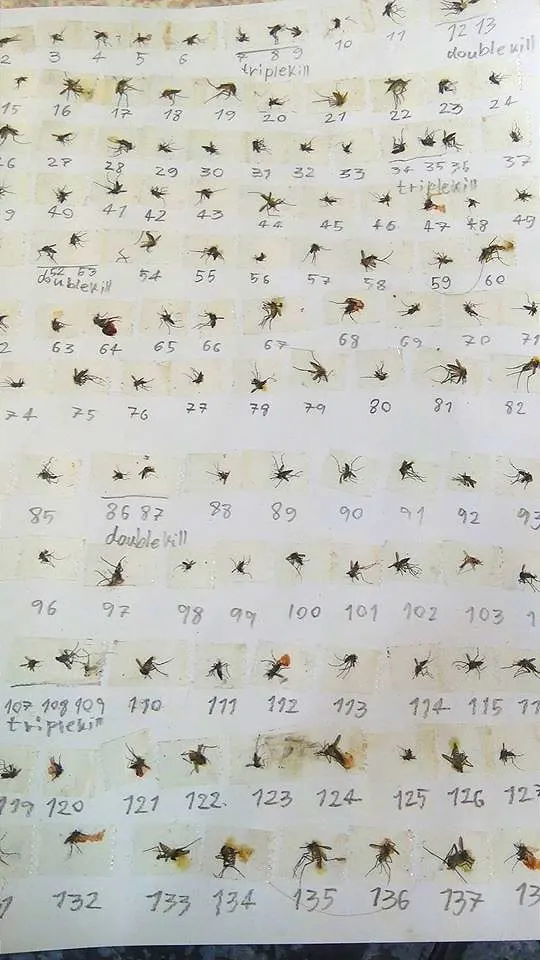 2 3 4 5 6 7 8 9 10 11 12 13
triplekill doublekill
15 16 17 18 19 20 21 22 23 24
26 27 28 29 30 31 32 33 34 35 36 37
triplekill
9 40 41 42 43 44 45 46 47 48 49
52 53 54 55 56 57 58 59 60
doublekill
2 63 64 65 66 67 68 69 70 71
74 75 76 77 78 79 80 81 82
85 86 87 88 89 90 91 92 93
doublekill
96 97 98 99 100 101 102 103 1
107 108 109 110 111 112 113 114 115 11
triplekill
119 120 121 122. 123 124 125 126 127
1 132 133 134 135 136 137 13